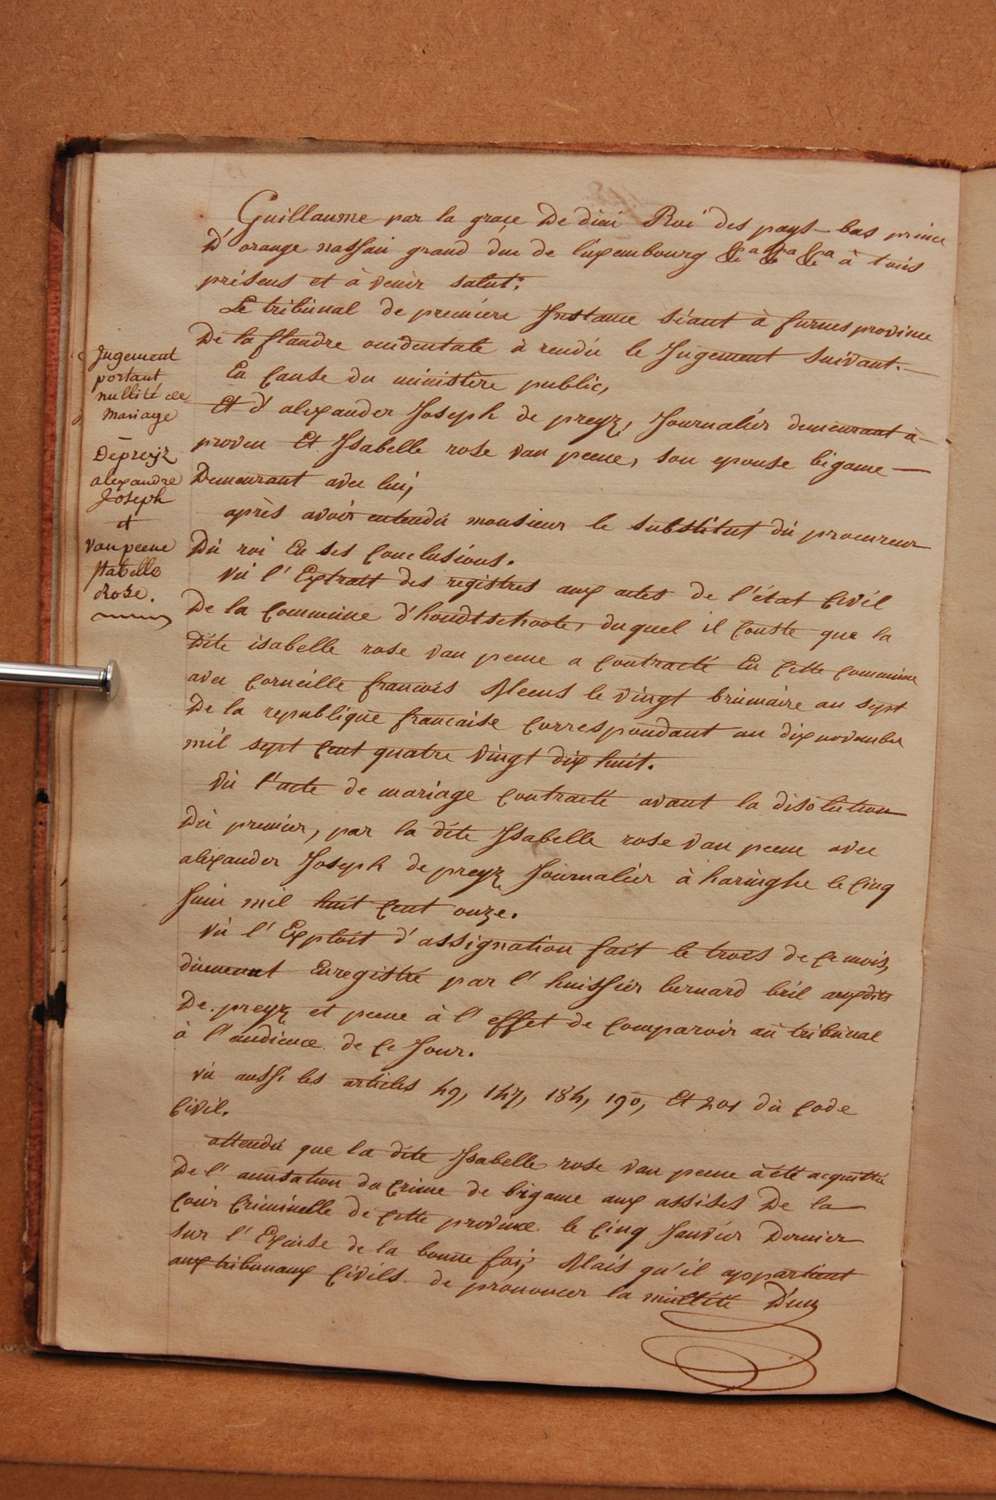 Guillaume par la grace De dieu Roi des pays-bas prince
D'orange nassau grand duc de luxembourg &a &a &a à tous
présens et à venir salut:
Le tribunal de première Instance séant à furnes province
De la flandre occidentale à rendu le Jugement Suivant.—
En Cause du ministère public,
Et d'alexander Joseph de preyz, Journalier demeurant à
proven Et Isabelle rose van peene, son epouse bigame —
Demeurant avec lui,
après avoir entendu monsieur le substitut du procureur
Du roi En ses Conclusions.
Vu l'Extrait des registres aux actes de l'état Civil
De la Commune d'houdtschoote, duquel il Conste que la
Dite isabelle rose van peene a Contracté En Cette Commune
avec Corneille francois Meeus le vingt brumaire an sept
De la republique francaise Correspondant au dix novembre
mil sept Cent quatre vingt dix huit.
Vu l'acte de mariage Contracté avant la disolution
Du premier, par la dite Isabelle rose van peene avec
alexander Joseph de preyz Journalier à haringhe le Cinq
Juin mil huit Cent onze.
Vu l'Exploit d'assignation fait le trois de Ce mois,
duement Enregistré par l'huissier bernard beil auxdits
De preyz et peene à l'effet de Comparoir au tribunal
à l'audience de Ce Jour.
vu aussi les articles 49, 147, 184, 190, Et 201 du Code
Civil.
attendu que la dite Isabelle rose van peene à été acquittée
De l'accusation du Crime de bigame aux assises De la
Cour Criminelle de Cette province le Cinq Janvier Dernier
sur l'Excuse de la bonne foi; Mais qu'il appartient
aux tribunaux Civils de prononcer la nullité D'un
Jugement
portant
nullité de
mariage
—
Depreijz
alexandre
Joseph
et
Vanpeene
Isabelle
Rose.